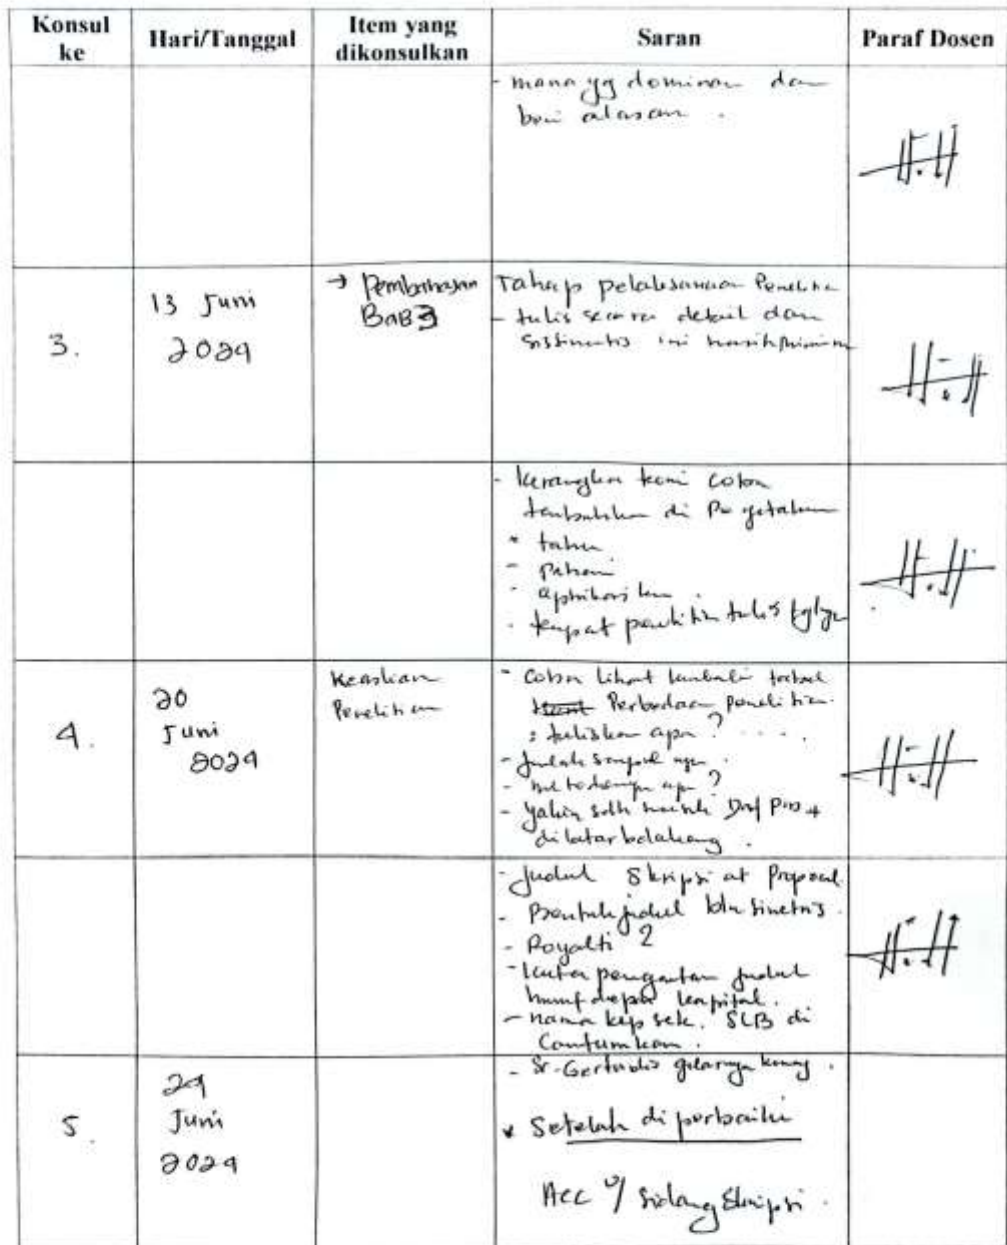 Konsul ke
Hari/Tanggal
Item yang dikonsulkan
Saran
Paraf Dosen
- mana yg dominan dan
beri alasan .
3.
13 Juni
2024
→ Pembahasan
BAB 3
Tahap pelaksanaan Peneliti
- tulis secara detail dan
sistimatis ini masih minim
- kerangka teori coba
tambahkan di Pengetahuan
* tahu
- paham
- aplikasikan .
. tempat penelitian tulis
4.
20
Juni
2024
Keaslian
Penelitian
- Coba lihat kembali tabel
Perbedaan penelitian.
: tuliskan apa ? . . . .
- Jumlah sampel apa .
- metodenya apa ?
- yakin sdh masuk
dilatar belakang .
- Judul Skripsi at Proposal.
- Bentuk judul bln simetris .
- Royalti ?
- Kata pengantar judul
huruf depan kapital.
- nama kep sek. SLB di
Cantumkan .
5.
24
Juni
2024
- Sr. Gertrudis gelarnya kurang .
* Setelah di perbaiki
Acc u/ Sidang Skripsi .